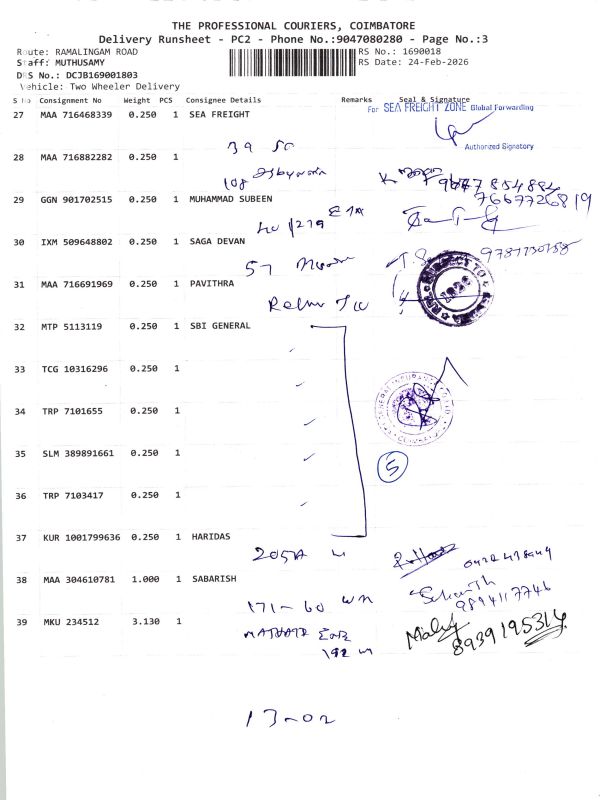 THE PROFESSIONAL COURIERS, COIMBATORE
Delivery Runsheet - PC2 - Phone No.:9047080280 - Page No.:3
Route: RAMALINGAM ROAD RS No.: 1690018
Staff: MUTHUSAMY RS Date: 24-Feb-2026
DRS No.: DCJB169001803
Vehicle: Two Wheeler Delivery
S No Consignment No Weight PCS Consignee Details Remarks Seal & Signature
For SEA FREIGHT ZONE Global Forwarding
27 MAA 716468339 0.250 1 SEA FREIGHT
Authorized Signatory
28 MAA 716882282 0.250 1
108
29 GGN 901702515 0.250 1 MUHAMMAD SUBEEN
7667726819
40/279
30 IXM 509648802 0.250 1 SAGA DEVAN
57
31 MAA 716691969 0.250 1 PAVITHRA
32 MTP 5113119 0.250 1 SBI GENERAL
33 TCG 10316296 0.250 1
34 TRP 7101655 0.250 1
35 SLM 389891661 0.250 1
5
36 TRP 7103417 0.250 1
37 KUR 1001799636 0.250 1 HARIDAS
205A
38 MAA 304610781 1.000 1 SABARISH
9894117746
171-60
39 MKU 234512 3.130 1
8939195314
192
13-02